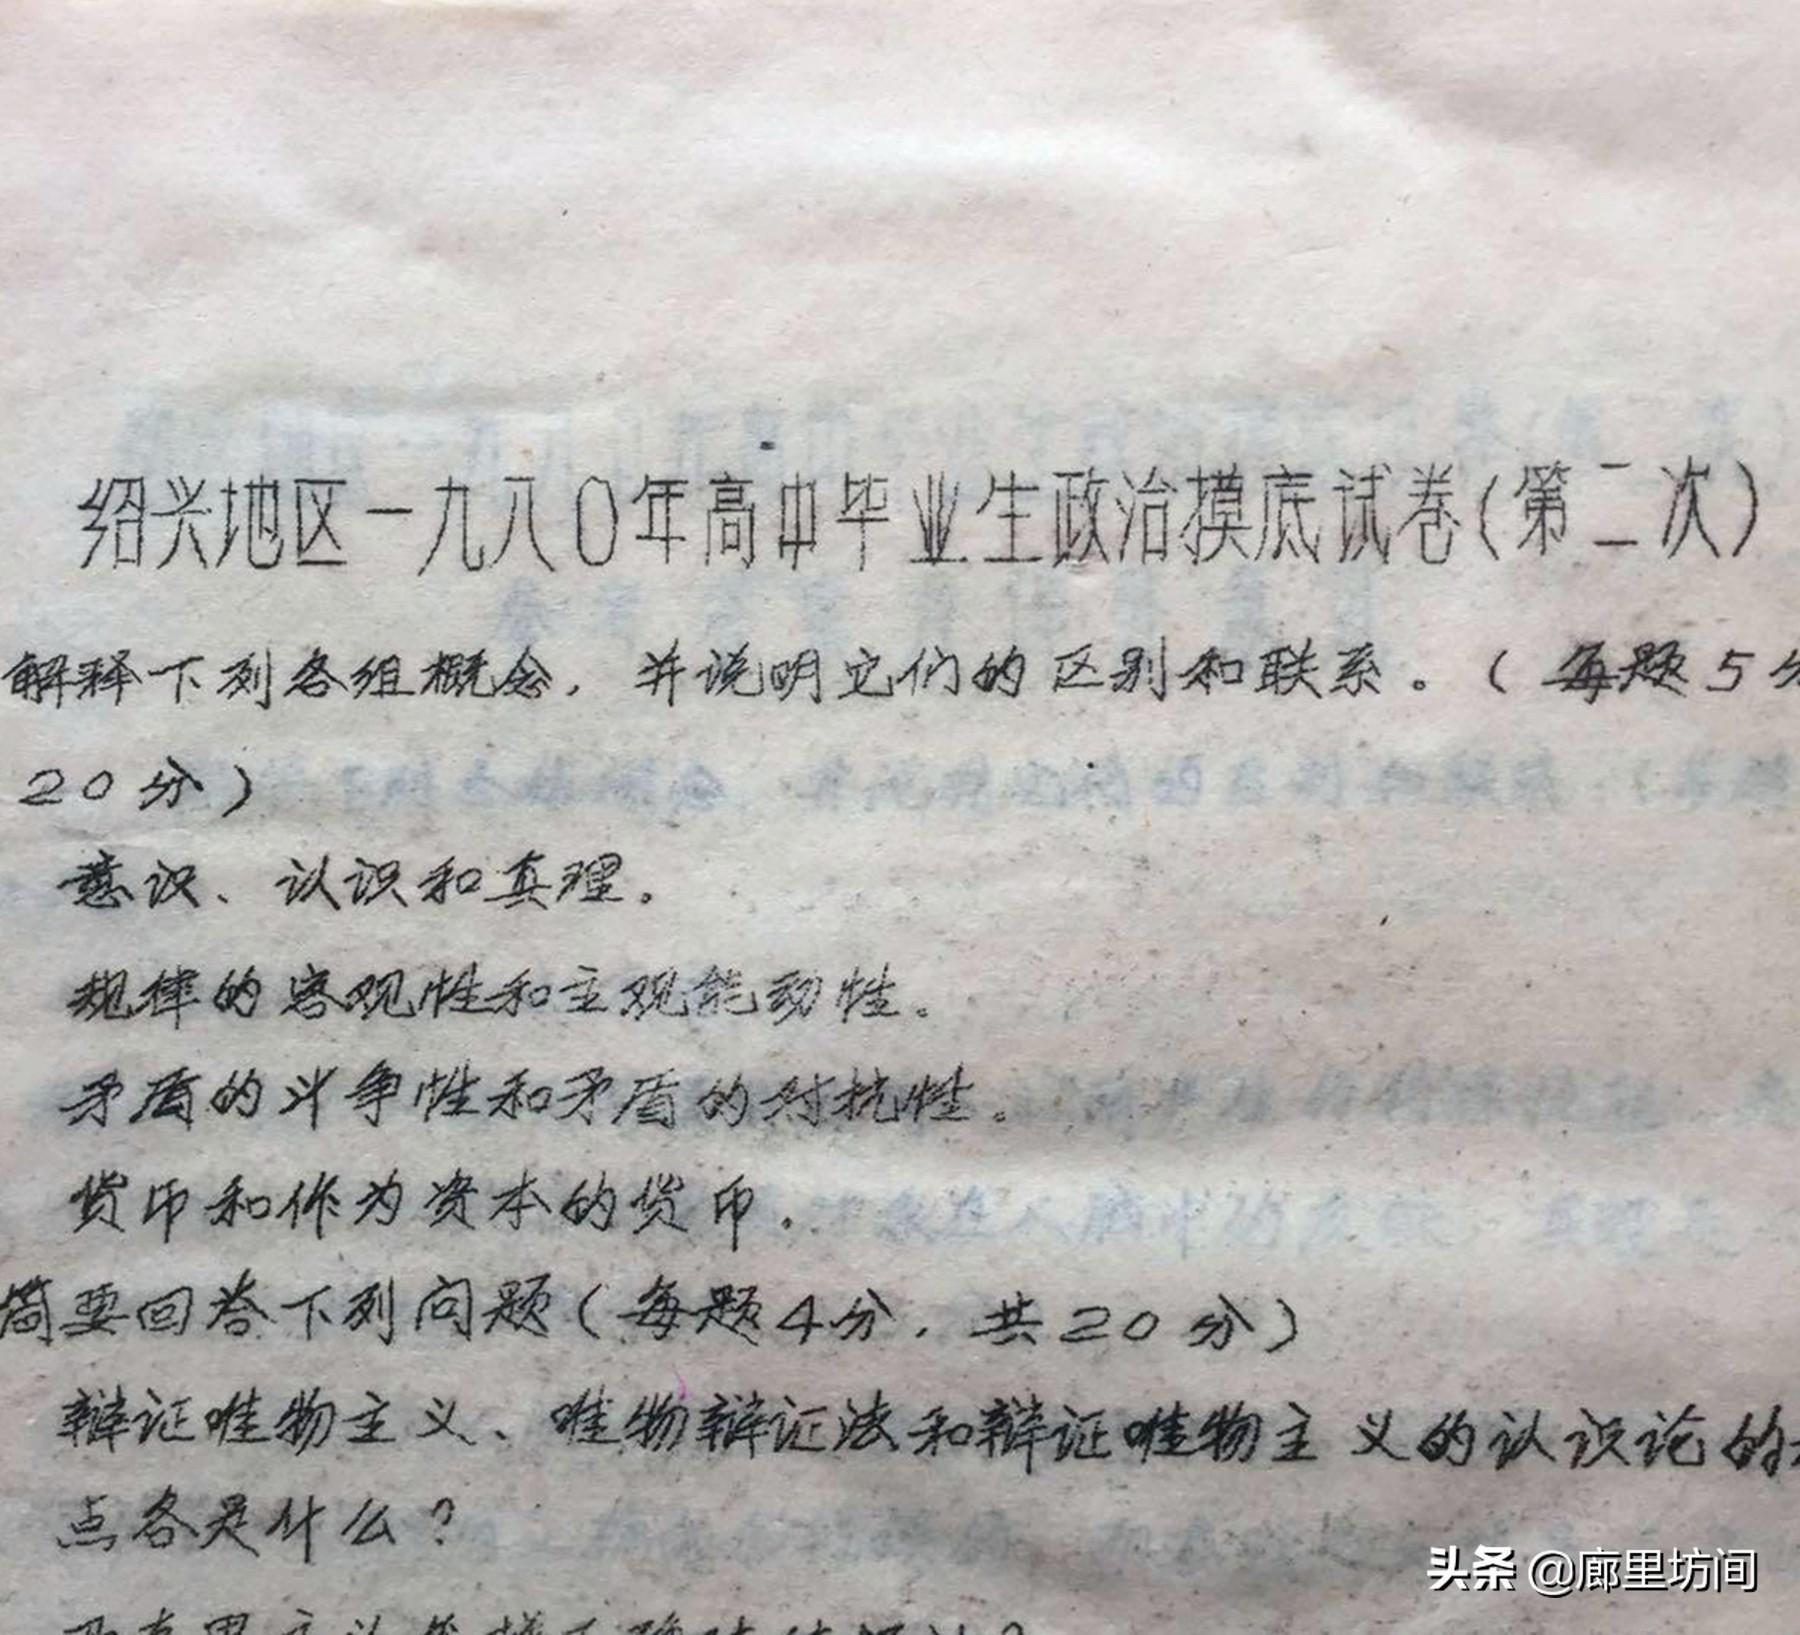 绍兴地区一九八〇年高中毕业生政治摸底试卷(第二次)
解释下列各组概念，并说明它们的区别和联系。(每题5分
20分)
意识、认识和真理。
规律的客观性和主观能动性。
矛盾的斗争性和矛盾的对抗性。
货币和作为资本的货币。
简要回答下列问题(每题4分，共20分)
辩证唯物主义、唯物辩证法和辩证唯物主义的认识论的
点各是什么?
头条 @廊里坊间